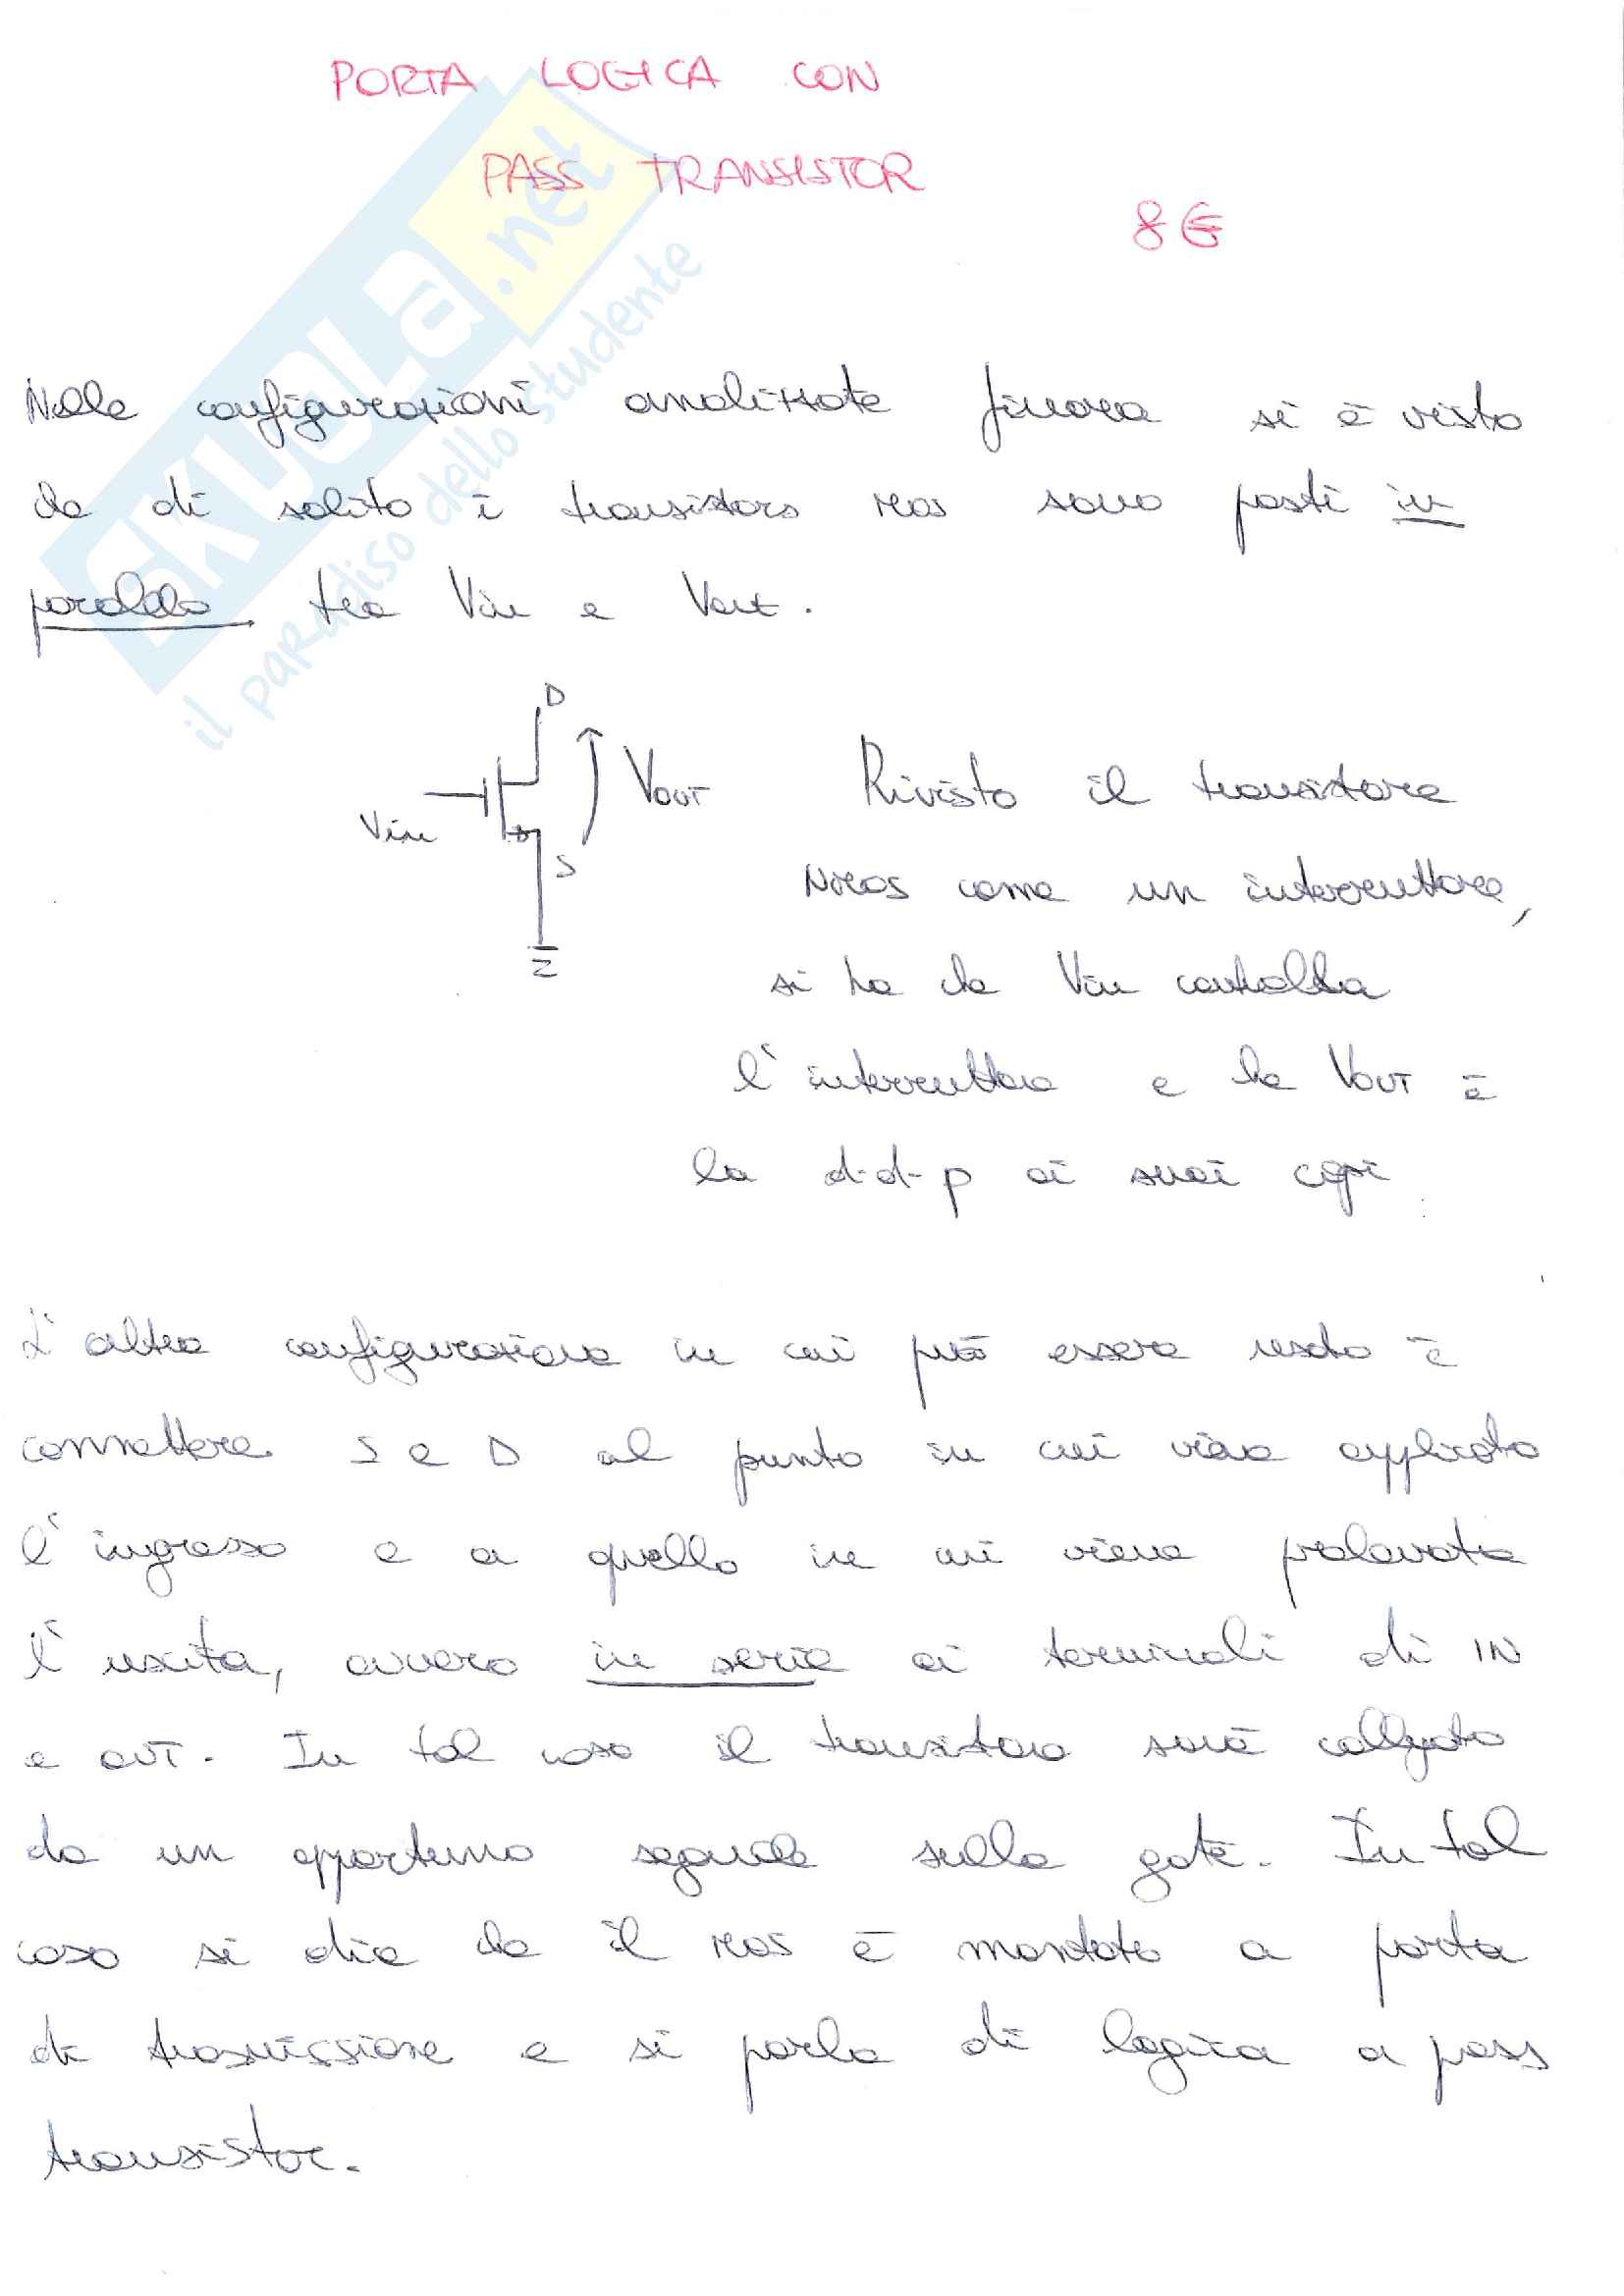 PORTA LOGICA CON
PASS TRANSISTOR
8€
SKUOLA.net
il paradiso dello studente
Nelle configurazioni analizzate finora si è visto
che di solito i transistors MOS sono posti in
parallelo tra Vin e Vout.
D
Vin
VOUT
S
Rivisto il transistore
NMOS come un interruttore,
si ha che Vin controlla
l'interruttore e la VOUT è
la d-d-p ai suoi capi
L'altra configurazione in cui può essere usato è
connettere S e D al punto in cui viene applicato
l'ingresso e a quello in cui viene prelevata
l'uscita, ovvero in serie ai terminali di IN
e OUT. In tal caso il transistore sarà
da un opportuno segnale sulla gate. In tal
caso si dice che il MOS è montato a porta
di trasmissione e si parla di logica a pass
transistor.